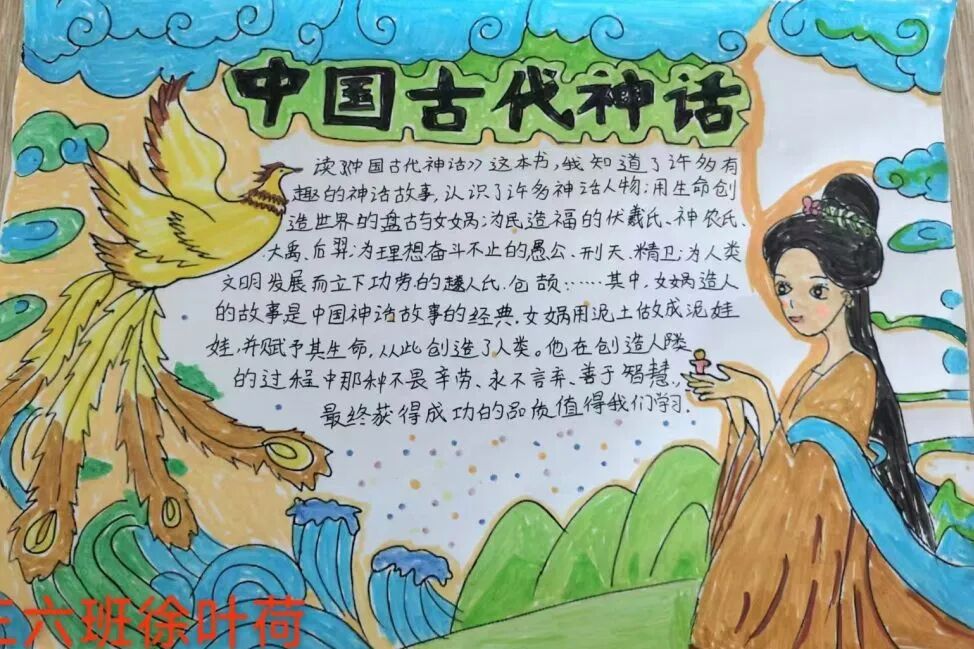 中国古代神话
读《中国古代神话》这本书,我知道了许多有
趣的神话故事,认识了许多神话人物:用生命创
造世界的盘古与女娲;为民造福的伏羲氏、神农氏、
大禹、后羿;为理想奋斗不止的愚公、刑天、精卫;为人类
文明发展而立下功劳的燧人氏、仓颉……其中,女娲造人
的故事是中国神话故事的经典.女娲用泥土做成泥娃
娃,并赋予其生命,从此创造了人类。他在创造人类
的过程中那种不畏辛劳、永不言弃、善于智慧,
最终获得成功的品质值得我们学习.
三六班徐叶荷